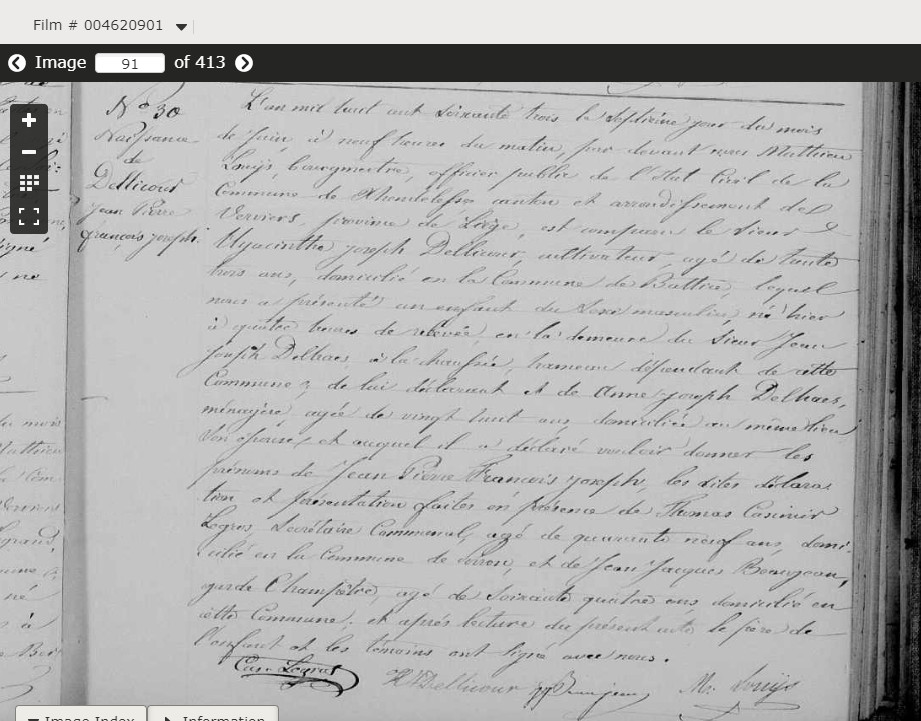 Film # 004620901
Image 91 of 413
N° 30
Naissance
de
Dellicour
Jean Pierre
François Joseph.
L'an mil huit cent Soixante trois le Septième jour du mois
de Juin à neuf heures du matin, par devant nous Mathieu
Louÿs, bourgmestre, officier public de l'Etat Civil de la
Commune de canton et arrondissement de
Verviers, province de Liège, est comparu le Sieur
Hyacinthe Joseph Dellicour, cultivateur, agé de trente
trois ans, domicilié en la Commune de Battice, lequel
nous a présenté un enfant du Sexe masculin, né hier
à quatre heures de relevée, en la demeure du Sieur Jean
Joseph Delhaes, à la chaussée, hameau dépendant de cette
Commune, de lui déclarant et de Anne Joseph Delhaes,
ménagère, agée de vingt huit ans domiciliée au même lieu
Son épouse, et auquel il a déclaré vouloir donner les
prénoms de Jean Pierre François Joseph, les dites déclara-
tion et présentation faites en présence de Thomas Casimir
Legros Secrétaire Communal, agé de quarante neuf ans, domi-
cilié en la Commune de Soiron, et de Jean Jacques Beaujean,
garde Champêtre, agé de Soixante quatre ans domicilié en
cette Commune; et après lecture du présent acte le père de
l'enfant et les témoins ont Signé avec nous.
Cas. Legros H J Dellicour JJ Beaujean M. Louÿs
Image Index Information